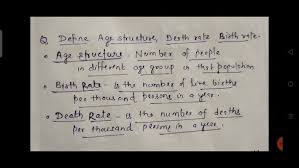 Q. Define Age structure, Death rate Birth rate.
• Age structure. Number of people
in different age group in that population
• Birth Rate - is the number of live births
per thousand persons in a year.
• Death Rate - is the number of deaths
per thousand persons in a year.